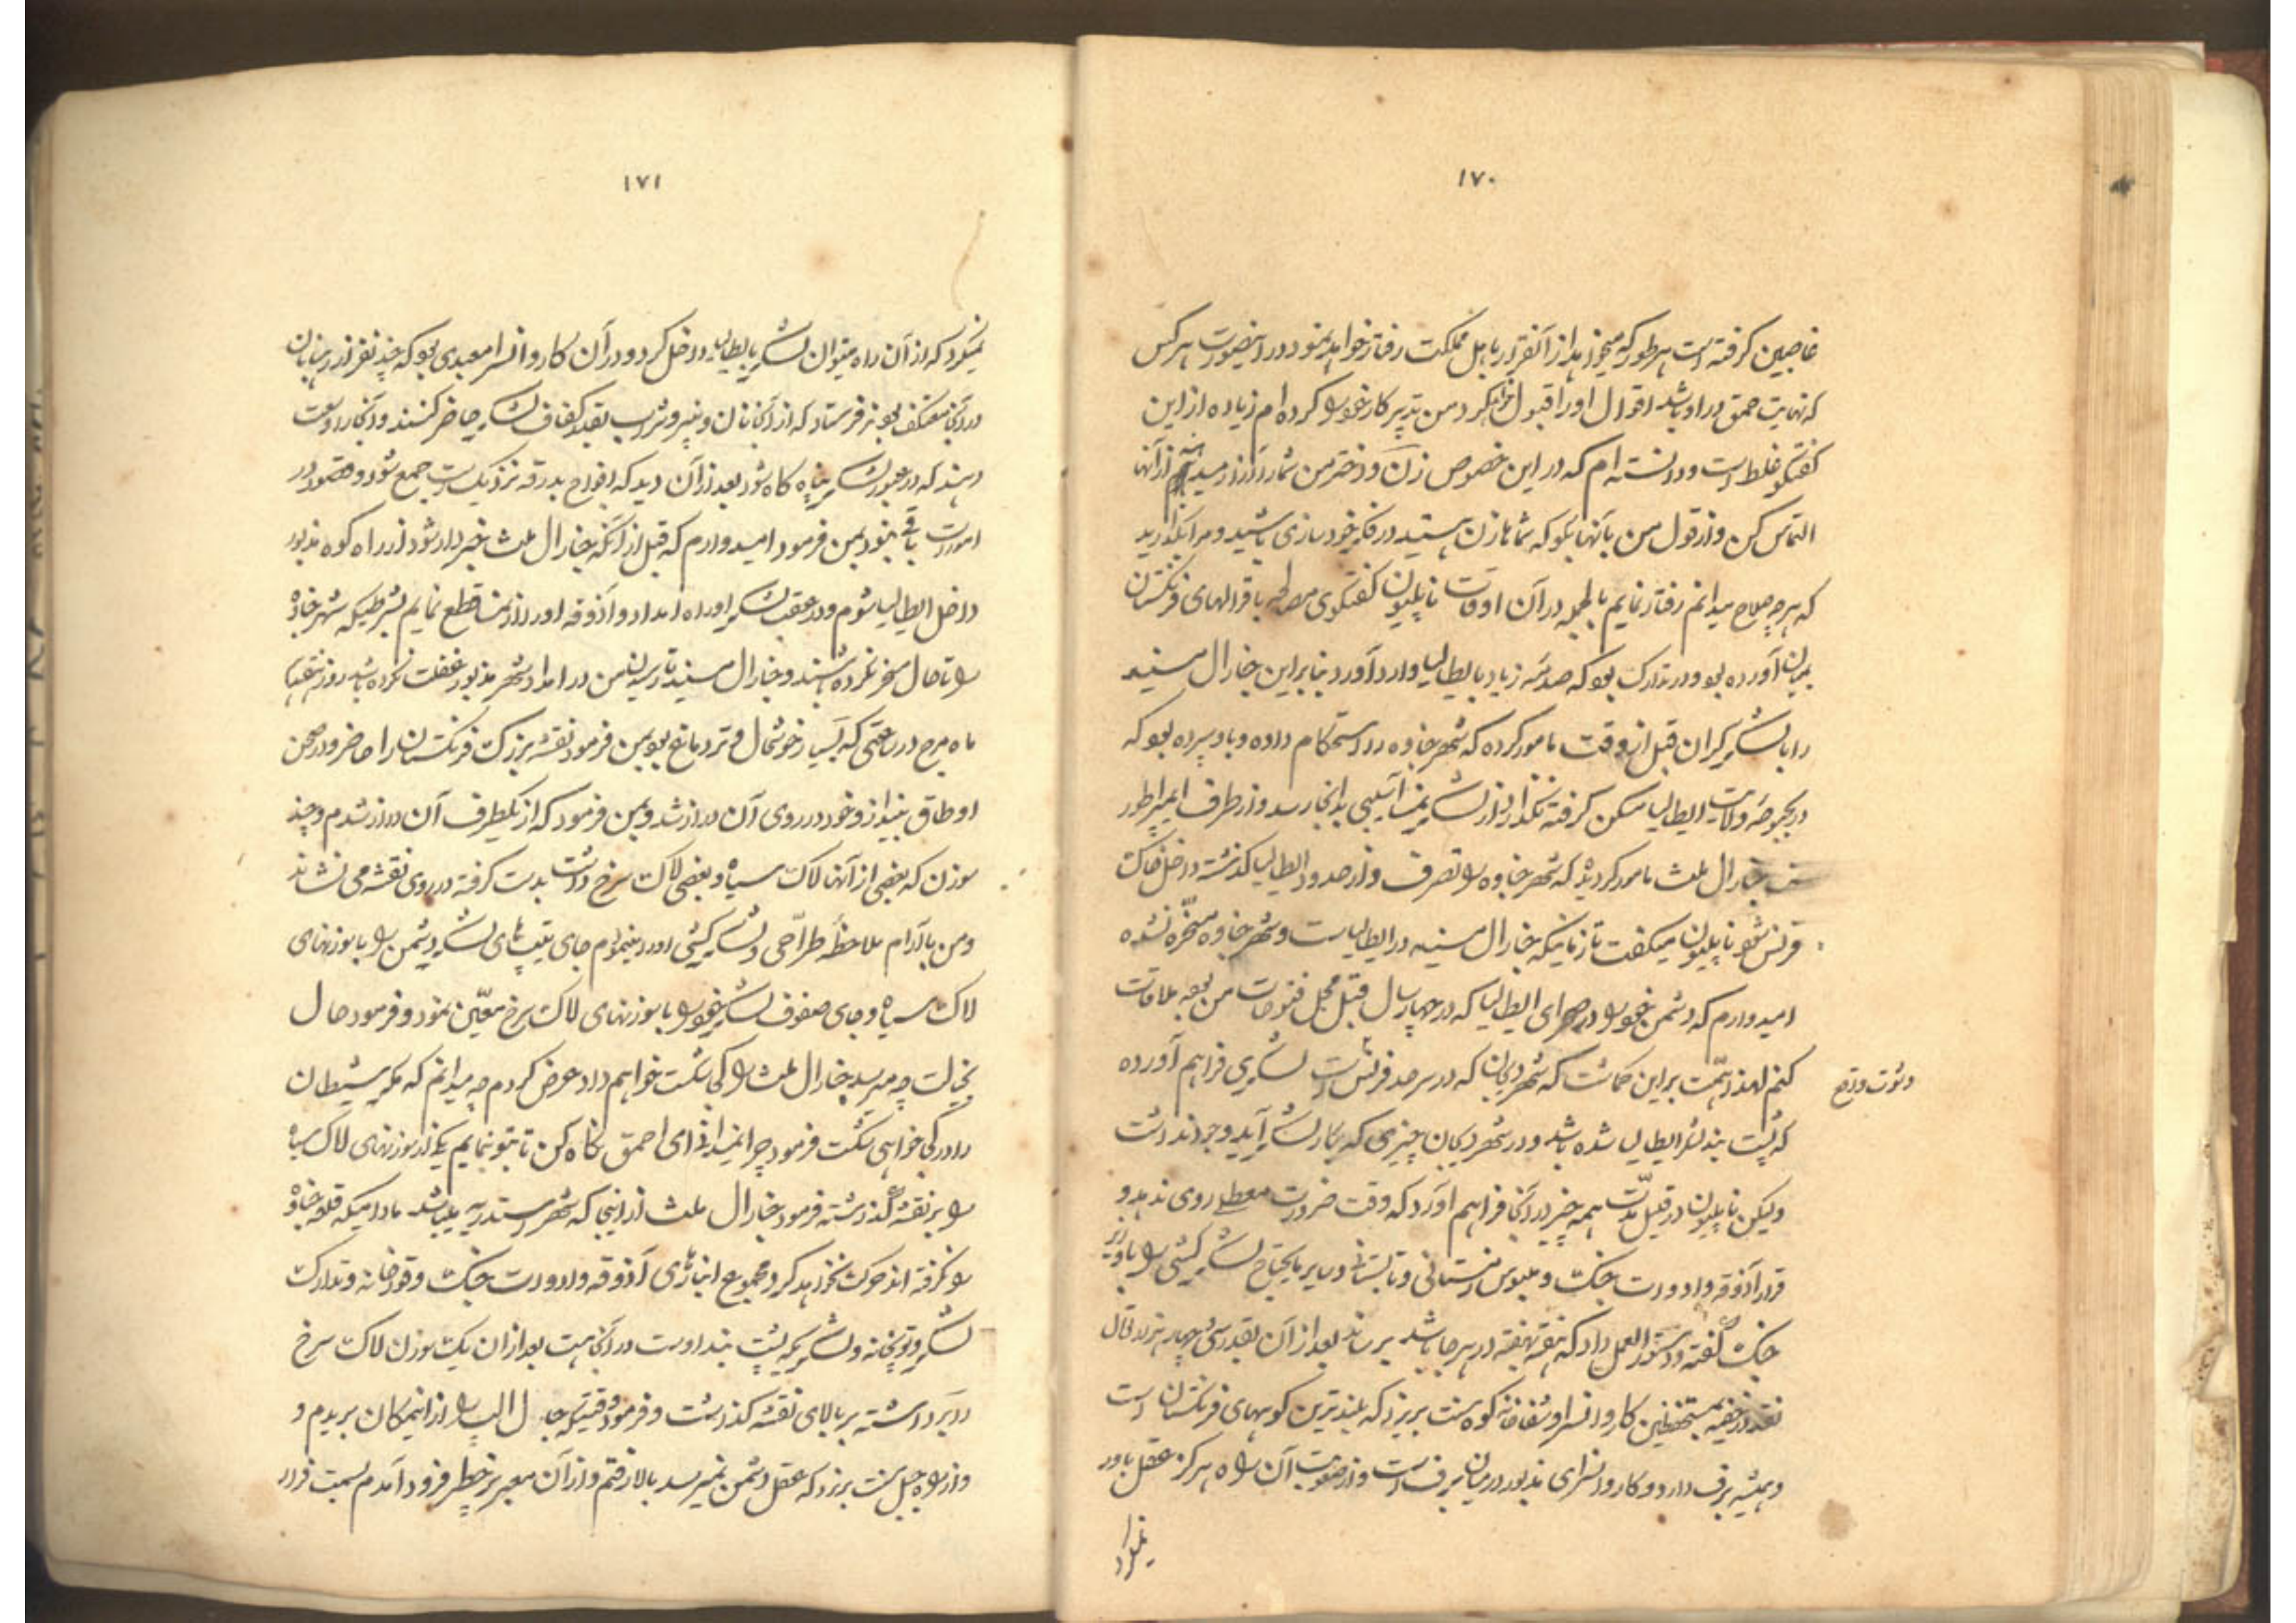 ۱۷۰
غاصبین گرفته است هرطور که میخواهد از آنقرار باهل مملکت رفتار خواهد نمود و در اینصورت هرکس
که نهایت حمق در او باشد اقوال او را قبول خواهد کرد من تدبیر کار خود را کرده ام زیاده از این
گفتگو غلط است و دانسته ام که در این خصوص زن و دختر من شما را از آنها
التماس کن و از قول من بآنها بگو که شماها زن هستید در فکر خودسازی باشید و مرا بگذارید
که هرچه صلاح میدانم رفتار نمایم بالجمله در آن اوقات ناپلیون گفتگوی مصالحه با قرالهای فرنگستان
بمیان آورده بود و در تدارک بود که صدمه زیاد بایطالیا وارد آورد بنابراین جنارال مسینه
را با لشکر گران قبل از وقت مامور کرده که شهر جناوه را استحکام داده و باو سپرده بود که
در بحبوحه ولایت ایطالیا مسکن گرفته نگذارد از لشکر نمسا آسیبی بدانجا رسد و از طرف ایمپراطور
جنارال ملث مامور گردید که شهر جناوه را تصرف و از حدود ایطالیا گذشته داخل خاک
فرنس شود ناپلیون میگفت تا زمانیکه جنارال مسینه در ایطالیاست و شهر جناوه مسخر نشده
امیدوارم که دشمن خود را در صحرای ایطالیا که در چهار سال قبل محل فتوحات من بود ملاقات
کنم لهذا همت بر این گماشت که شهر دیجان که در سرحد فرنس است لشکری فراهم آورده
که پشت بند لشکر ایطالیا شده باشد و در شهر دیجان چیزی که بکار لشکر آید وجود نداشت
ولیکن ناپلیون در قلیل مدت همه چیز در آنجا فراهم آورد که وقت ضرورت معطلی روی ندهد و
قرار آذوقه و ادوات جنگ و ملبوس زمستانی و تابستانی و سایر مایحتاج لشکرکشی را با وزیر
جنگ گفته و دستورالعمل داد که هفته بهفته در هرجا باشد برساند بعد از آن بقدر سی چهار هزار تالار
نقد در خفیه بمستحفظین کاروانسرا و شفاخانه کوه سنت برنرد که بلندترین کوههای فرنگستان است
و همیشه برف دارد و کاروانسرای مذبور در میان برف است و از صعوبت آن راه هرگز عقل باور
نمیکرد
۱۷۱
نمیکرد که از آن راه میتوان لشکر بایطالیا داخل کرد و در آن کاروانسرا معبدی بود که چند نفر از رهبانان
در آنجا معتکف بودند فرستاد که از آنجا نان و پنیر و شراب بقدر کفاف لشکر حاضر کنند و آنجا را وسعت
دهند که در عبور لشکر پناه گاه شود بعد از آن دید که افواج بدرقه نزدیک است جمع شود و قصور در
امورات باقی نبود بمن فرمود امیدوارم که قبل از آنکه جنارال ملث خبردار شود از راه کوه مذبور
داخل ایطالیا شوم و در عقب لشکر او راه امداد و آذوقه او را از نمسا قطع نمایم بشرطیکه شهر جناوه
را تا حال مسخر نکرده باشند و جنارال مسینه تا رسیدن من در امداد شهر مذبور غفلت نکرده باشد روز هفتم
ماه مرچ در ساعتی که بسیار خوشحال و تردماغ بود بمن فرمود نقشه بزرگ فرنگستان را حاضر و در صحن
اوطاق بینداز و خود در روی آن دراز شد و بمن فرمود که از یکطرف آن دراز شدم و چند
سوزن که بعضی از آنها لاک سیاه و بعضی لاک سرخ داشت بدست گرفته در روی نقشه می نشاند
و من با آرام ملاحظه طراحی و لشکرکشی او را مینمودم جای تیپهای لشکر دشمن را با سوزنهای
لاک سیاه و جای صفوف لشکر خود را با سوزنهای لاک سرخ معین نمود و فرمود حال
بخیالت چه میرسد جنارال ملث را کجا شکست خواهم داد عرض کردم چه میدانم که مگر شیطان
داند کجا خواهی شکست فرمود چرا نمیدانی ای احمق نگاه کن تا بتو بنمایم یکی از سوزنهای لاک سیاه
را بر نقشه گذاشته فرمود جنارال ملث از اینجا که شهر اسکندریه میباشد مادامیکه قلعه جناوه
را نگرفته اند حرکت نخواهد کرد و مجموع انبارهای آذوقه و ادوات جنگ و قورخانه و تدارک
لشکر و توپخانه و لشکریکه پشت بند اوست در آنجا هست بعد از آن یک سوزن لاک سرخ
را برداشته بر بالای نقشه گذاشت و فرمود وقتیکه جبال الپ را از اینمکان بریدم و
از راه جبل سنت برنرد که عقل دشمن نمیرسد بالا رفتم و از آن معبر پرخطر فرود آمدم بسمت فرار